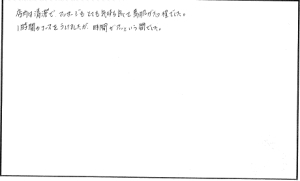 店内は清潔で、マッサージもとても気持ち良くて鳥肌がたつ程でした。
1時間のコースをうけましたが、時間があっという間でした。